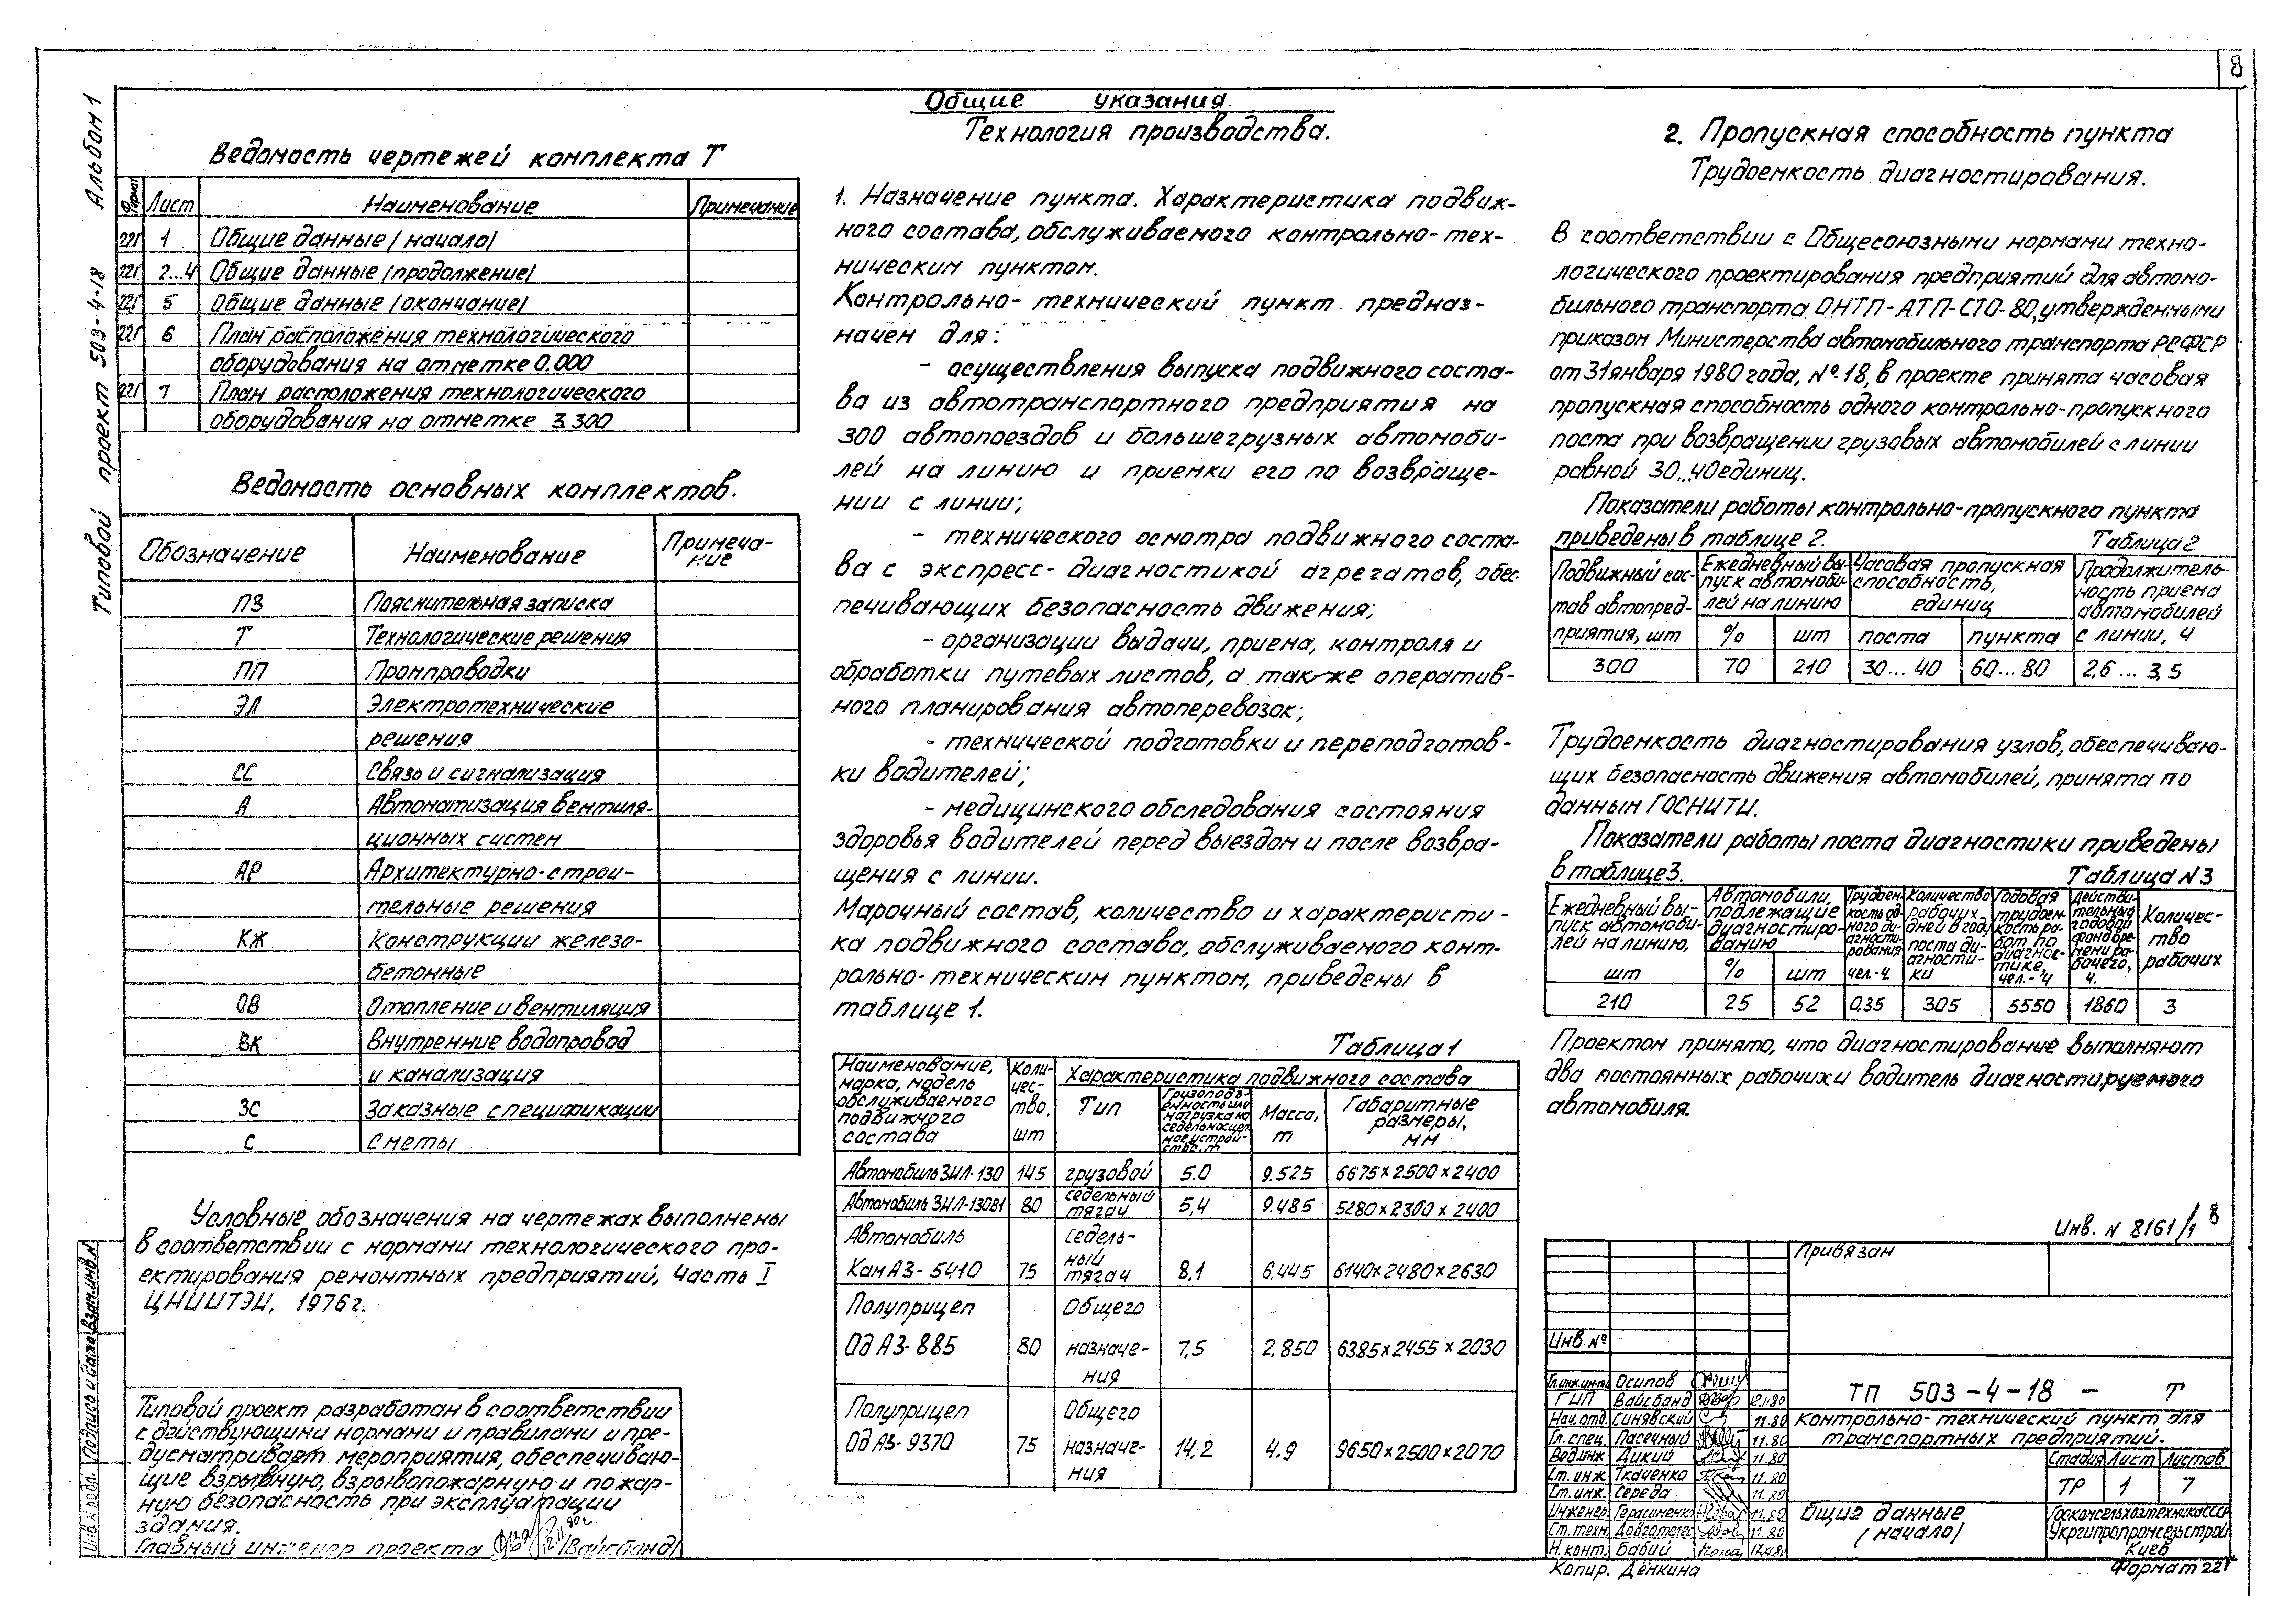 8
Альбом 1
Типовой проект 503-4-18
Ведомость чертежей комплекта Т
Формат Лист Наименование Примечание
22Г 1 Общие данные (начало)
22Г 2...4 Общие данные (продолжение)
22Г 5 Общие данные (окончание)
22Г 6 План расположения технологического
оборудования на отметке 0.000
22Г 7 План расположения технологического
оборудования на отметке 3.300
Ведомость основных комплектов.
Обозначение Наименование Примеча-
ние
ПЗ Пояснительная записка
Т Технологические решения
ПП Промпроводки
ЭЛ Электротехнические
решения
СС Связь и сигнализация
А Автоматизация вентиля-
ционных систем
АР Архитектурно-строи-
тельные решения
КЖ Конструкции железо-
бетонные
ОВ Отопление и вентиляция
ВК Внутренние водопровод
и канализация
ЗС Заказные спецификации
С Сметы
Условные обозначения на чертежах выполнены
в соответствии с нормами технологического про-
ектирования ремонтных предприятий, Часть I
ЦНИИТЭИ, 1976г.
Типовой проект разработан в соответствии
с действующими нормами и правилами и пре-
дусматривает мероприятия, обеспечиваю-
щие взрывную, взрывопожарную и пожар-
ную безопасность при эксплуатации
здания.
Главный инженер проекта /Вайсбанд/
Инв.N подл. Подпись и дата Взам.инв.N
Общие указания.
Технология производства.
1. Назначение пункта. Характеристика подвиж-
ного состава, обслуживаемого контрольно-тех-
ническим пунктом.
Контрольно-технический пункт предназ-
начен для:
- осуществления выпуска подвижного соста-
ва из автотранспортного предприятия на
300 автопоездов и большегрузных автомоби-
лей на линию и приемки его по возвраще-
нии с линии;
- технического осмотра подвижного соста-
ва с экспресс-диагностикой агрегатов, обес-
печивающих безопасность движения;
- организации выдачи, приема, контроля и
обработки путевых листов, а также оператив-
ного планирования автоперевозок;
- технической подготовки и переподготов-
ки водителей;
- медицинского обследования состояния
здоровья водителей перед выездом и после возвра-
щения с линии.
Марочный состав, количество и характеристи-
ка подвижного состава, обслуживаемого конт-
рольно-техническим пунктом, приведены в
таблице 1.
Таблица 1
Наименование, марка, модель обслуживаемого подвижного состава Коли-чес-тво, шт Характеристика подвижного состава
Тип Грузоподъ-емность или нагрузка на седельносцеп-ное устрой-ство, т Масса, т Габаритные размеры, мм
Автомобиль ЗИЛ-130 145 грузовой 5.0 9.525 6675×2500×2400
Автомобиль ЗИЛ-130В1 80 седельный тягач 5,4 9.485 5280×2360×2400
Автомобиль Седель-
ный
КамАЗ-5410 75 тягач 8,1 6.445 6140×2480×2630
Полуприцеп Общего
ОдАЗ-885 80 назначе- 7,5 2.850 6385×2455×2030
ния
Полуприцеп Общего
ОдАЗ-9370 75 назначе- 14,2 4.9 9650×2500×2070
ния
2. Пропускная способность пункта
Трудоемкость диагностирования.
В соответствии с Общесоюзными нормами техно-
логического проектирования предприятий для автомо-
бильного транспорта ОНТП-АТП-СТО-80, утвержденными
приказом Министерства автомобильного транспорта РСФСР
от 31 января 1980 года, №18, в проекте принята часовая
пропускная способность одного контрольно-пропускного
поста при возвращении грузовых автомобилей с линии
равной 30...40 единиц.
Показатели работы контрольно-пропускного пункта
приведены в таблице 2. Таблица 2
Подвижный сос-тав автопред-приятия, шт Ежедневный вы-пуск автомоби-лей на линию Часовая пропускная способность, единиц Продолжитель-ность приема автомобилей с линии, ч
% шт поста пункта
300 70 210 30...40 60...80 2,6...3,5
Трудоемкость диагностирования узлов, обеспечиваю-
щих безопасность движения автомобилей, принята по
данным ГОСНИТИ.
Показатели работы поста диагностики приведены
в таблице 3. Таблица N3
Ежедневный вы-пуск автомоби-лей на линию, шт Автомобили, подлежащие диагностиро-ванию Трудоем-кость од-ного ди-агности-рования чел-ч Количество рабочих дней в году поста ди-агности-ки Годовая трудоем-кость ра-бот по диагнос-тике, чел.-ч Действи-тельный годовой фонд вре-мени ра-бочего, ч. Количес-тво рабочих
% шт
210 25 52 0,35 305 5550 1860 3
Проектом принято, что диагностирование выполняют
два постоянных рабочих и водитель диагностируемого
автомобиля.
Инв. N 8161/1 8
Привязан
Инв.№
Гл.инж.ин-та Осипов
ГИП Вайсбанд 12.11.80
Нач.отд. Синявский 11.80
Гл.спец. Пасечный 11.80
Вед.инж Дикий 11.80
Ст.инж. Ткаченко 11.80
Ст.инж. Середа 11.80
Инженер Герасименко 11.80
Ст.техн. Довготелес 11.80
Н.конт. Бабий
ТП 503-4-18 - Т
Контрольно-технический пункт для
транспортных предприятий.
Стадия Лист Листов
ТР 1 7
Общие данные
(начало)
Госкомсельхозтехника СССР
Укргипропромсельстрой
Киев
Копир. Дёнкина Формат 22Г